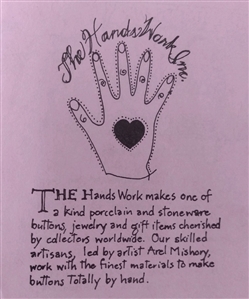 The Hands Work Inc.
THE Hands Work makes one of
a kind porcelain and stoneware
buttons, jewelry and gift items cherished
by collectors worldwide. Our skilled
artisans, led by artist Arel Mishory,
work with the finest materials to make
buttons Totally by hand.